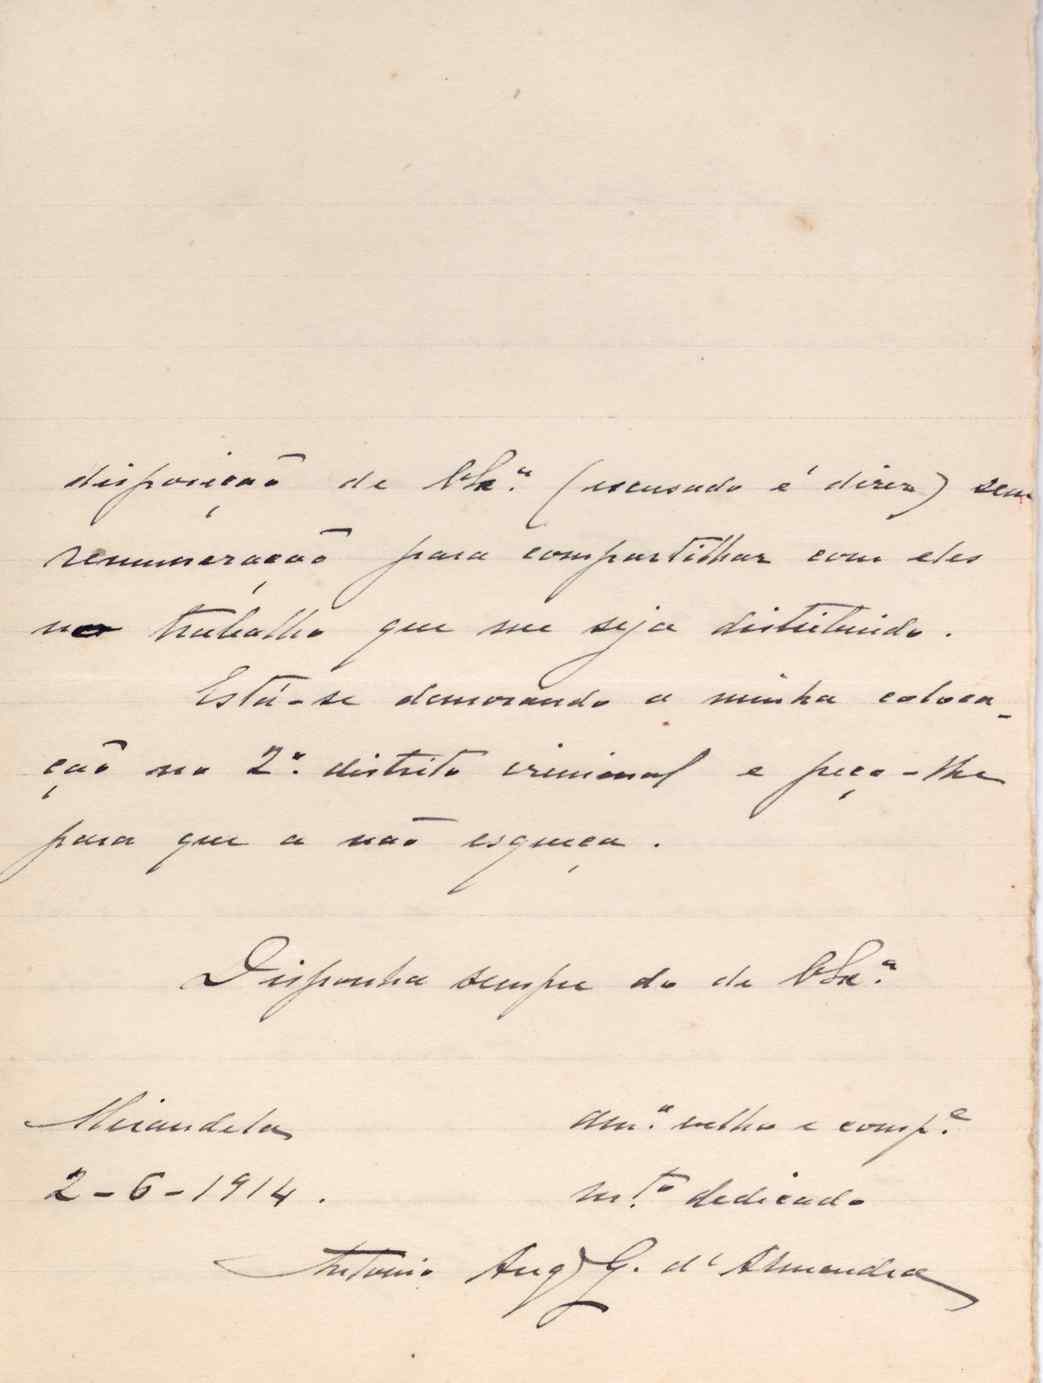 disposição de V Ex.ª (escusado é dizer) sem
remuneração para compartilhar com eles
no trabalho que me seja distribuido.
Está-se demorando a minha coloca-
ção no 2.º distrito criminal e peço-lhe
para que a não esqueça.
Disponha sempre do de V Ex.ª
Mirandela
am.º velho e comp.e
2-6-1914.
m.to dedicado
Antonio Aug G. d'Almendra